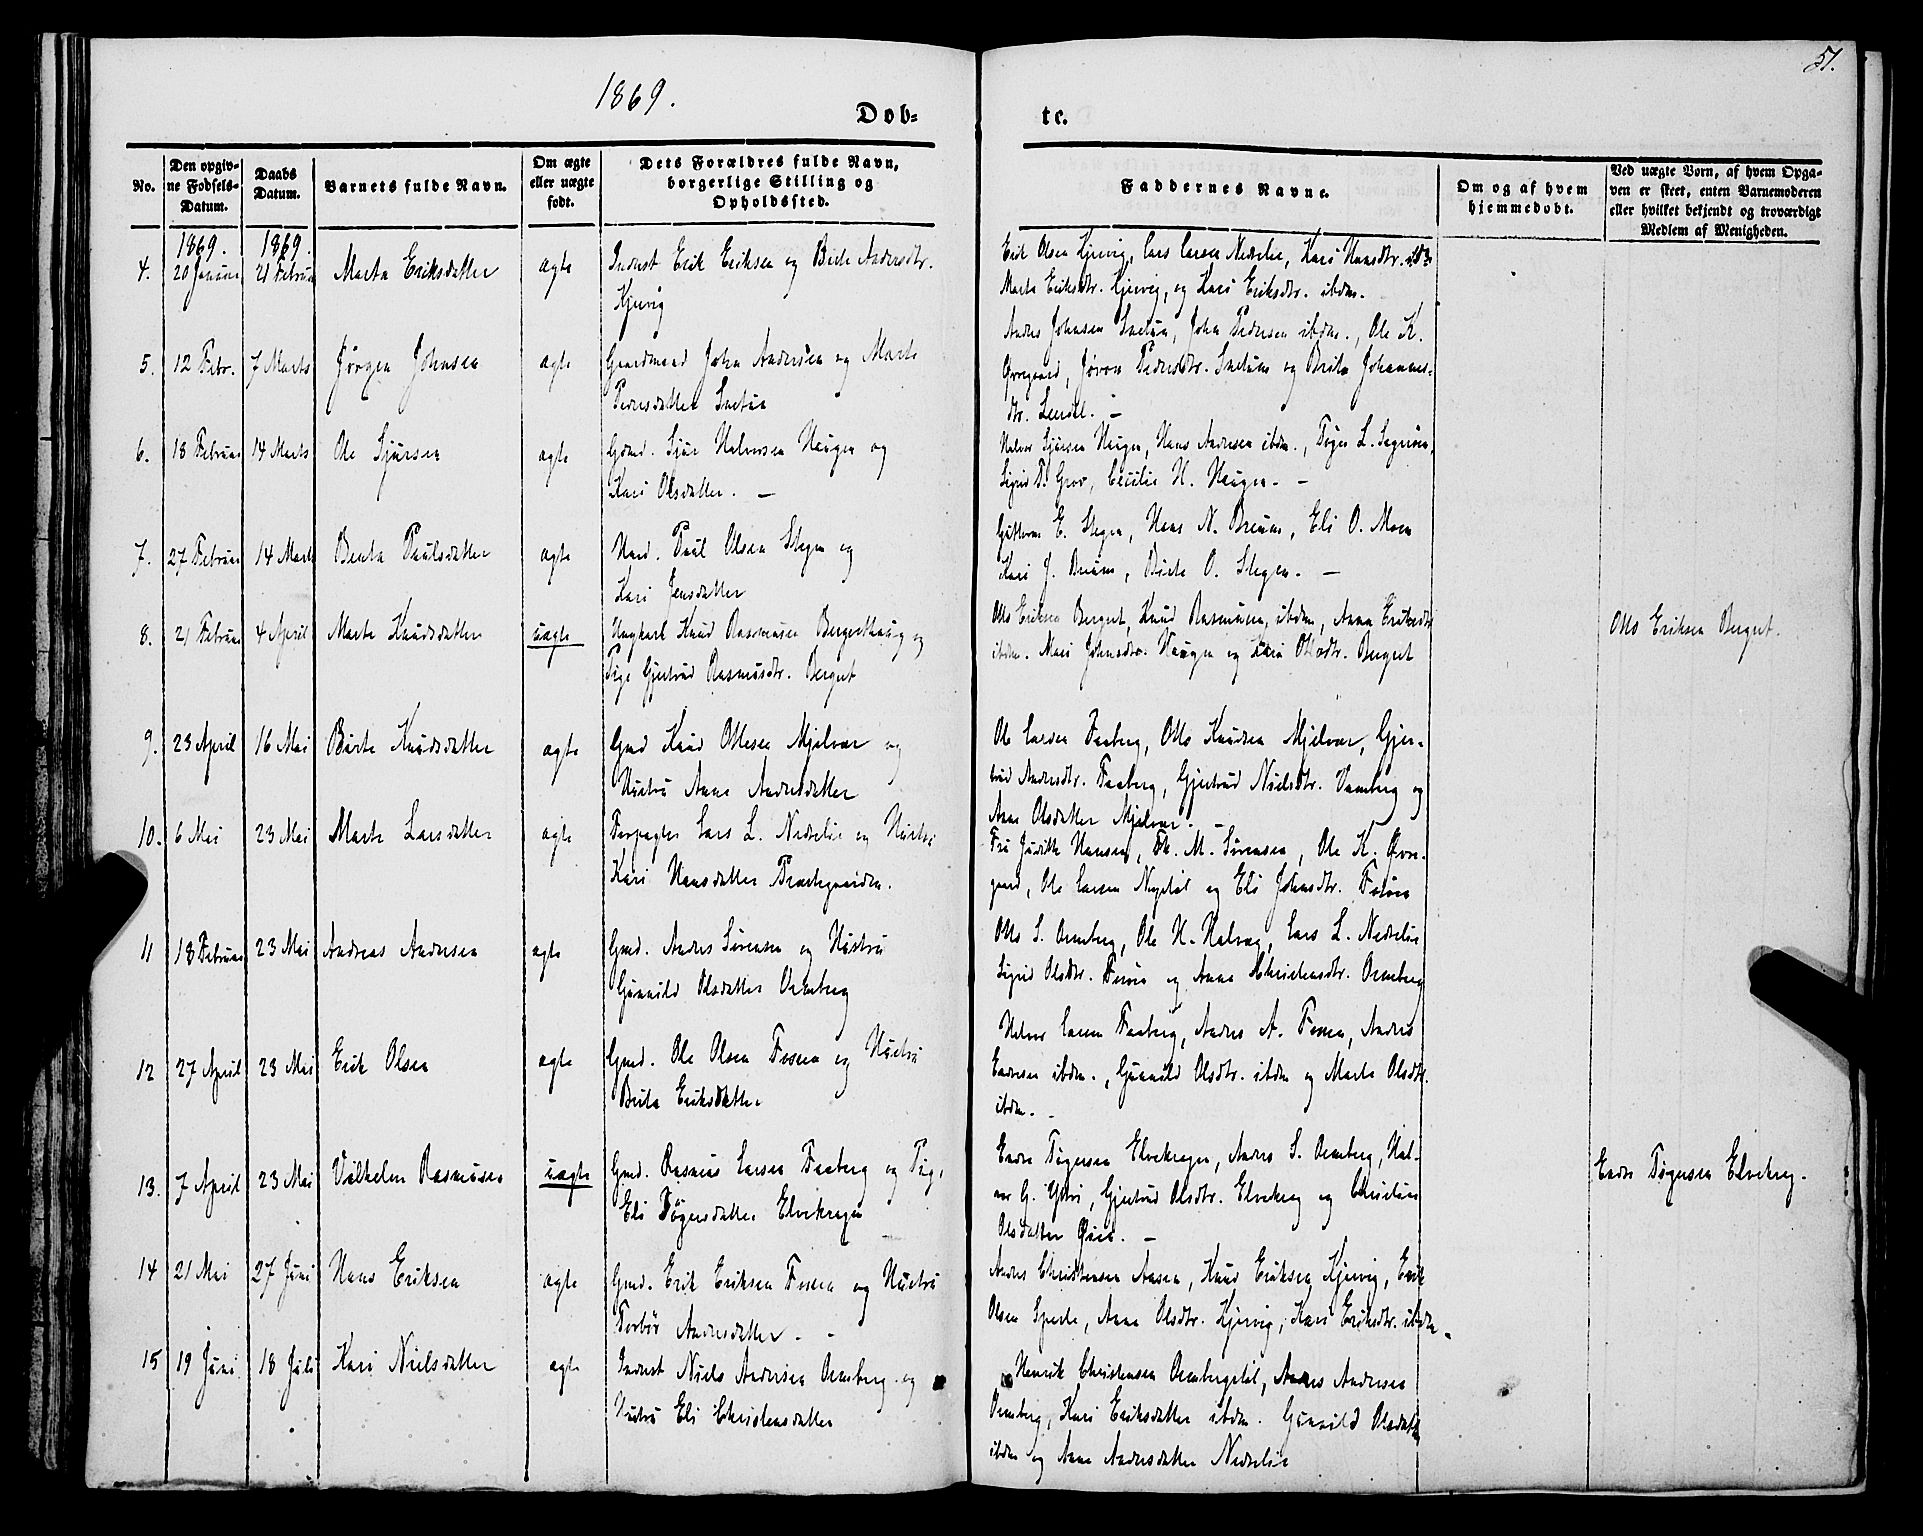 51.
1869.
Dob- te.
No.
Den opgiv-
ne Fødsels-
Datum.
Daabs
Datum.
Barnets fulde Navn.
Om ægte
eller uægte
født.
Dets Forældres fulde Navn,
borgerlige Stilling og
Opholdssted.
Faddernes Navne.
Om og af hvem
hjemmedøbt.
Ved uægte Born, af hvem Opga-
ven er skeet, enten Barnemoderen
eller hvilket bekjendt og troværdigt
Medlem af Menigheden.
1869. 1869.
4. 20 Januar 21 Februar Marta Eriksdatter ægte Inderst Erik Eriksen og Birte Andersdtr.
Kjervig
Erik Olsen Kjervig, Lars Larsen Nedrelie, Kari Hansdtr.
Marta Eriksdtr. Kjervig, og Kari Eriksdtr. ibdm.
5. 12 Febr. 7 Marts Jørgen Johnsen ægte Gaardmand John Andersen og Marte
Pedersdatter Snetun
Anders Johnsen Snetun, John Pedersen ibdm., Ole K.
Øvregaard, Pedersdtr. Snetun og Brita Johannes-
dtr.
6. 18 Februar 14 Marts Ole Sjursen ægte Gdmd. Sjur Halvorsen Haugen og
Kari Olsdatter. —
Halvor Sjursen Haugen, Hans Andersen ibdm., Tøger L.
Sigrid T. Grov, Cecilie H. Haugen. —
7. 27 Februar 14 Marts Benta Paulsdatter ægte Hmd. Paul Olsen Stegen og
Kari Jensdatter
E. Stegen, Hans N. Breum, Eli O. Moen
Kari J. Breum, Birte O. Stegen. —
8. 21 Februar 4 April Marte Knudsdatter uægte Ungkarl Knud Rasmusen Bergesthaug og
Pige Gjertrud Rasmusdtr. Berget
Otto Eriksen Berget, Knud Rasmusen, ibdm, Anna Eriksdtr
ibdm. Mari Johnsdtr. Haugen og Kari Ottosdtr. Berget
Otto Eriksen Berget.
9. 23 April 16 Mai Birte Knudsdatter ægte Gmd Knud Ottesen Mjelvær og
Hustru Anna Andersdatter
Ole Larsen Faaberg, Otto Knudsen Mjelvær, Gjer-
trud Andersdtr. Faaberg, Gjertrud Nielsdtr. Vamberg og
Anne Olsdatter Mjelvær. —
10. 6 Mai 23 Mai Marte Larsdatter ægte Forpagter Lars L. Nedrelie og Hustru
Kari Hansdatter Præstegaarden.
Fru Judith Hansen, Th. M. Sørensen, Ole K. Øvre-
gaard, Ole Larsen Nystøl og Eli Johnsdtr.
11 18 Februar 23 Mai Andreas Andersen ægte Gmd. Anders Sørensen og Hustru
Gunnild Olsdatter Ormberg
Otto S. Ormberg, Ole H. Lars L. Nedrelie
Sigrid Olsdtr. og Anna Christensdtr. Ormberg
12 27 April 23 Mai Erik Olsen ægte Gmd. Ole Olsen Fossen og Hustru
Brita Eriksdatter
Halvor Larsen Faaberg, Anders A. Fossen, Anders
Endresen ibdm., Gunnild Olsdtr. ibdm og Marta Olsdtr.
ibdm. —
13. 7 April 23 Mai Vilhelm Rasmusen uægte Gmd. Rasmus Larsen Faaberg og Pig.
Eli Tøgersdatter Elvekregen
Endre Tøgersen Elvekregen, Anders S. Ormberg, Hal-
vor G. Ytri, Gjertrud Olsdtr. Elvekreg og Christine
Olsdatter Øien. —
Endre Tøgersen Elvekreg.
14 21 Mai 27 Juni Hans Eriksen ægte Gmd. Erik Eriksen Fossen og Hustru
Torbør Andersdatter. —
Anders Christensen Aasen, Knud Eriksen Kjervig, Erik
Olsen Sperle, Anna Olsdtr. Kjervig, Kari Eriksdtr. ibdm.
15 19 Juni 18 Juli Kari Nielsdatter ægte Inderst Niels Andersen Ormberg og
Hustru Eli Christensdatter
Henrik Christensen Ormbergstøl, Anders Andersen
Ormberg, Kari Eriksdatter ibdm. Gunnild Olsdatter
ibdm og Anna Andersdatter Nedrelie